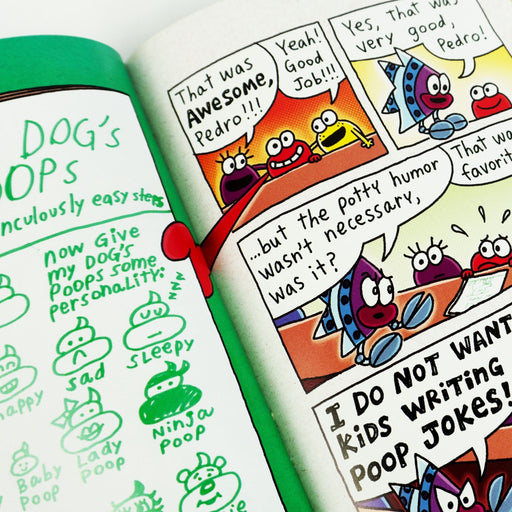 DOG's
OOPS
nculously easy steps
now Give
my DOG'S
Poops some
personality:
zzz
sleepy
sad
happy
Ninja
poop
Lady
poop
Baby
poop
That was
AWESOME,
Pedro!!!
Yeah!
Good
Job!!!
Yes, that was
very good,
Pedro!
...but the potty humor
wasn't necessary,
was it?
That wa
favorit
I DO NOT WANT
KIDS WRITING
POOP JOKES!